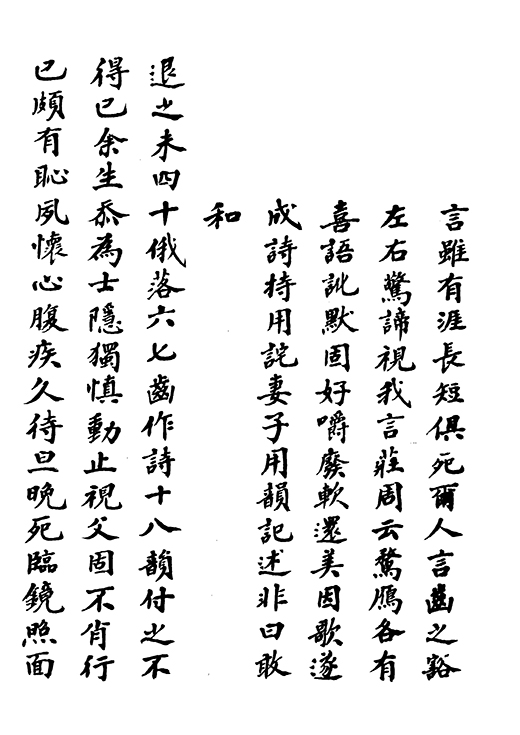 言雖有涯長短俱死爾人言齒之豁
左右驚諦視我言莊周云鶩鴈各有
喜語訛默固好嚼廢軟還美因歌遂
成詩持用詫妻子用韻記述非曰敢
和
退之未四十俄落六七齒作詩十八韻付之不
得已余生忝為士隱獨慎動止視父固不肖行
已頗有恥夙懷心腹疾久待旦晚死臨鏡照面